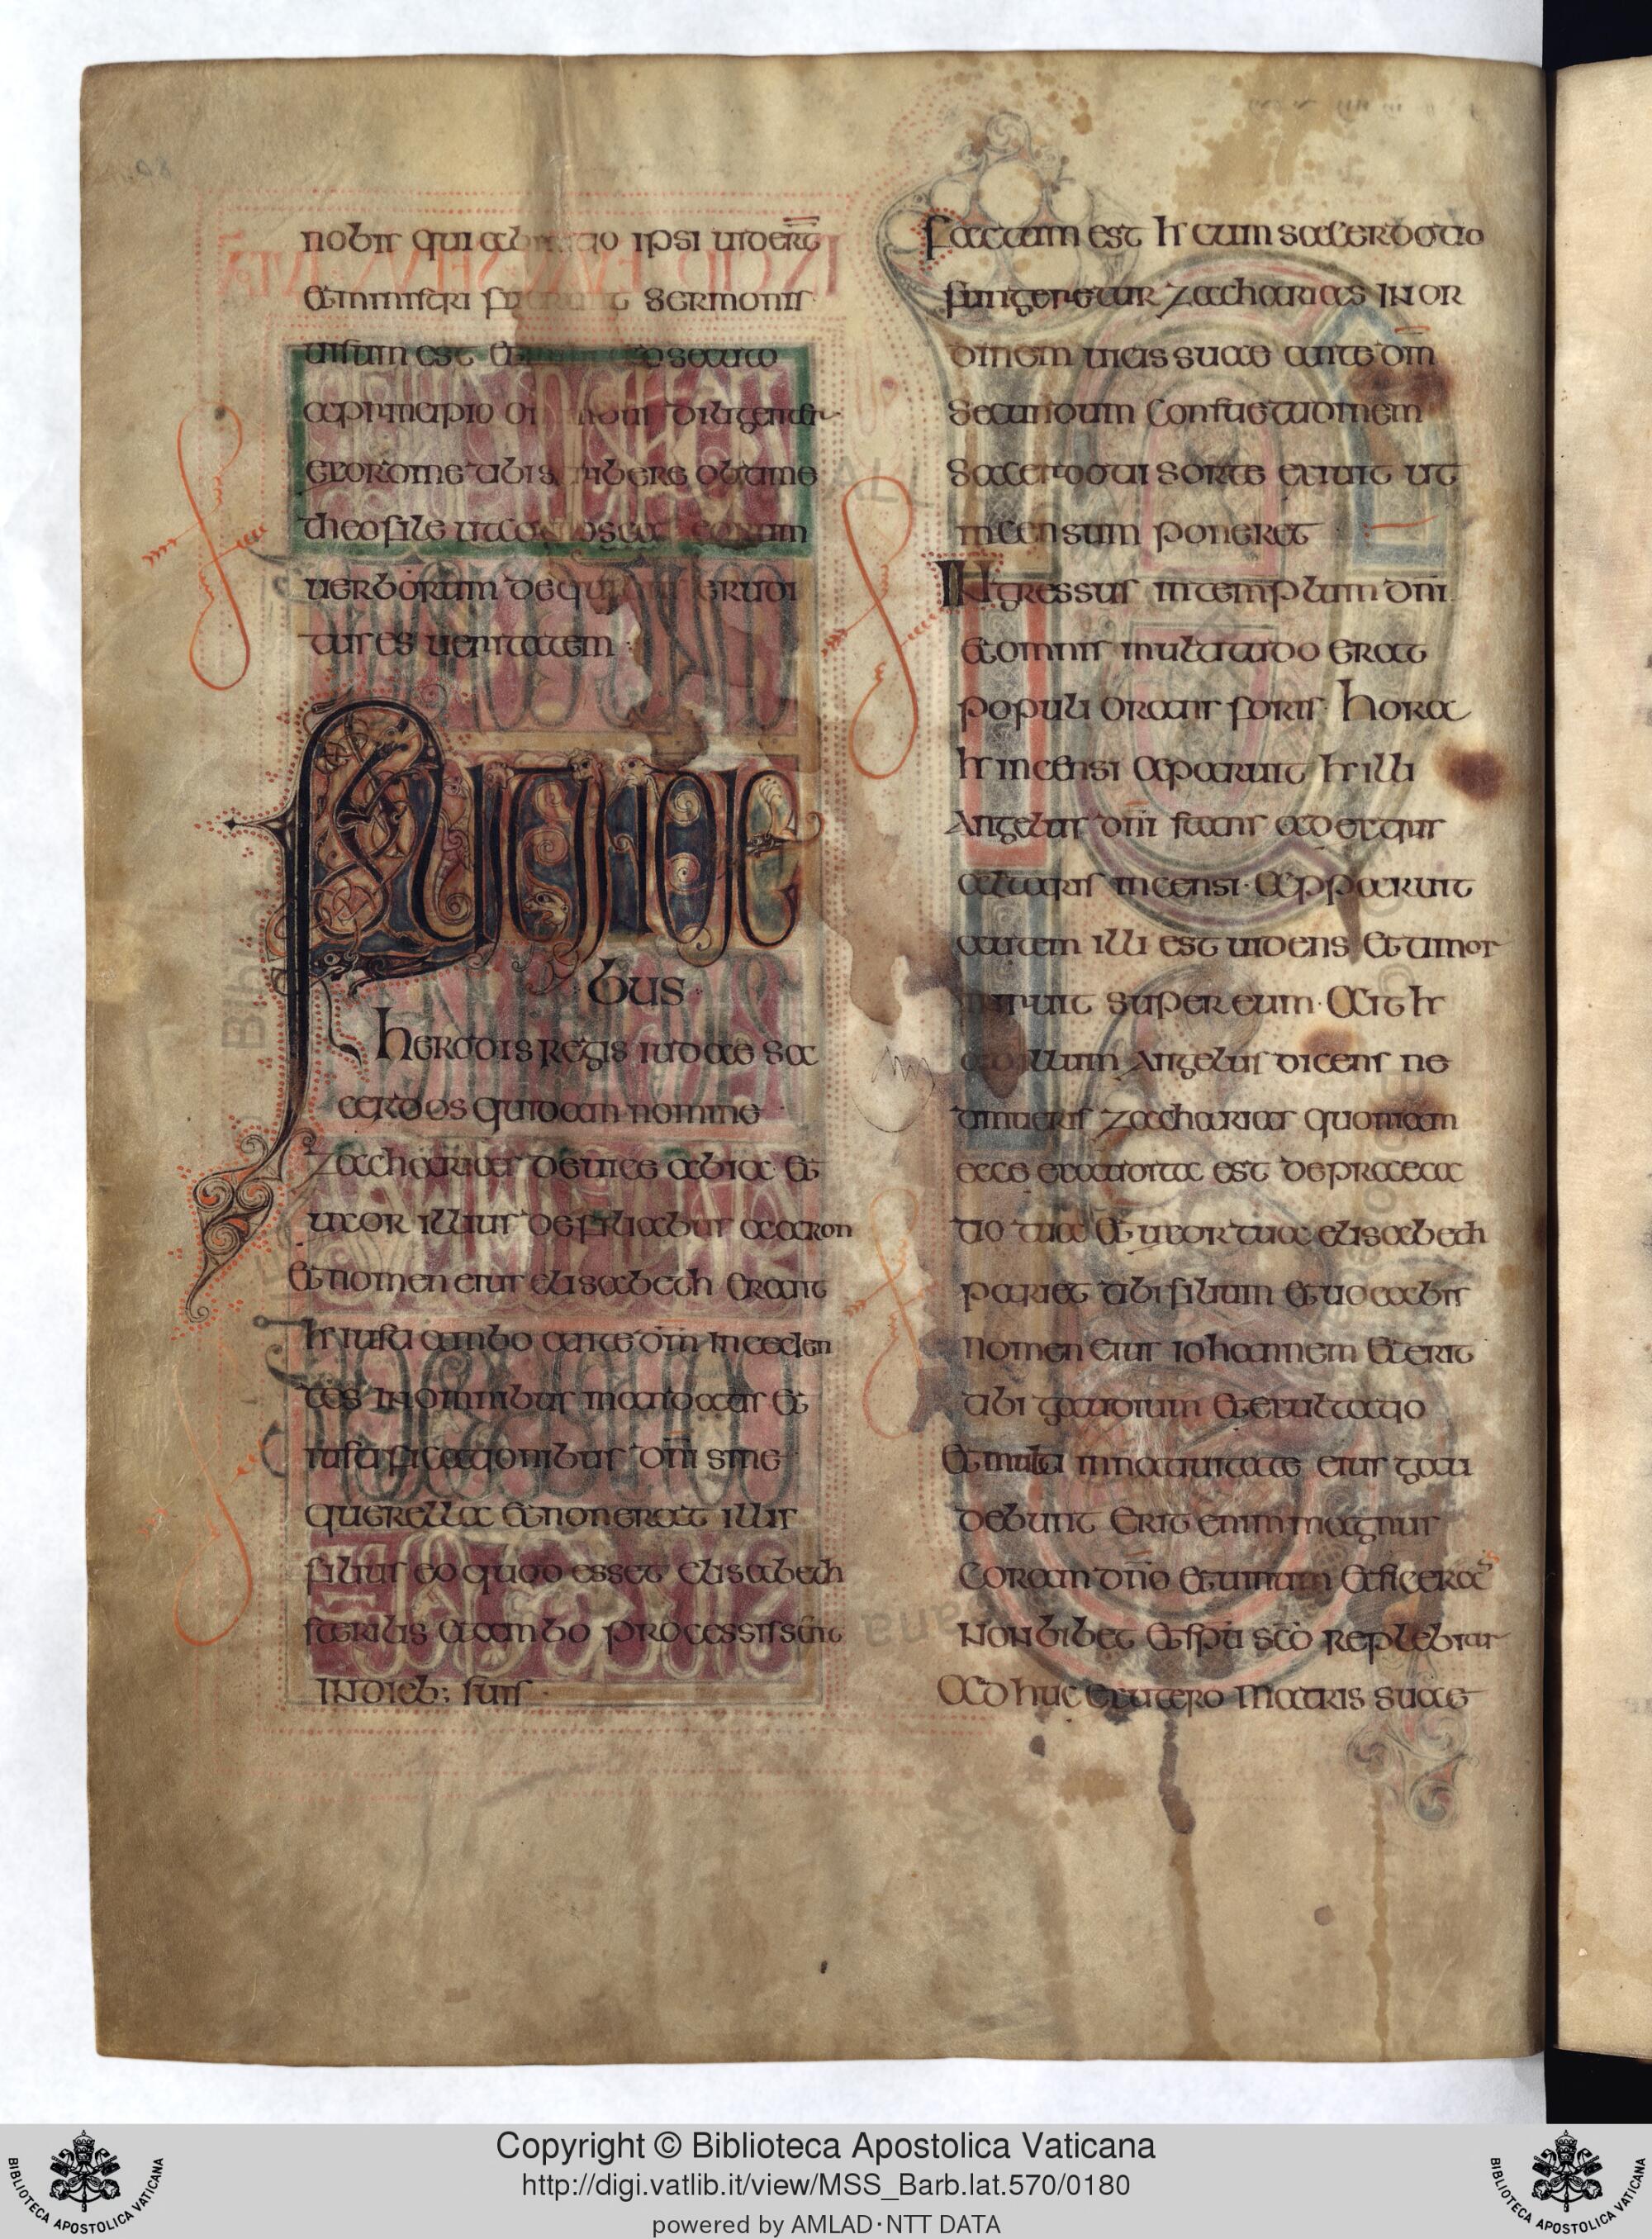 nobis qui ab initio ipsi uideꝝ̄t
et ministri fuerunt sermonis
uisum est et mihi adsecuto
a principio omnibus diligenter
ex ordine tibi scribere obtime
theofile ut cognoscas eorum
uerborum de quibus erudi
tus es ueritatem
Fuit in die
bus
herodis regis iudae sa
cerdos quidam nomine
zacharias de uice abia et
uxor illius de filiabus aaron
et nomen eius elisabeth erant
hr iusti ambo ante dm̄ inceden
tes in omnibus mandatis et
iustificationibus dn̄i sine
querella et non erat illis
filius eo quod esset elisabeth
sterilis et ambo processissent
in dieb; suis
factum est hr cum sacerdotio
fungeretur zacharias in or
dinem uicis suae ante dm̄
secundum consuetudinem
sacerdotii sorte exiuit ut
incensum poneret
Ingressus in templum dn̄i
et omnis multitudo erat
populi orans foris hora
hr incensi aparuit hr illi
angelus dn̄i stans ad extris
altaris incensi · apparuit
autem illi est uidens et timor
inruit super eum · ait hr
ad illum angelus dicens ne
timueris zacharias quoniam
ecce exaudita est depraeca
tio tua et uxor tua elisabeth
pariet tibi filium et uocabis
nomen eius iohannem et erit
tibi gaudium et exultatio
et multi in natiuitate eius gau
debunt erit enim magnus
coram dn̄o et uinum et sicera
non bibet et sp̄u sc̄o replebitur
adhuc ex utero matris suae
Copyright © Biblioteca Apostolica Vaticana
http://digi.vatlib.it/view/MSS_Barb.lat.570/0180
powered by AMLAD·NTT DATA
BIBLIOTECA APOSTOLICA VATICANA
BIBLIOTECA APOSTOLICA VATICANA